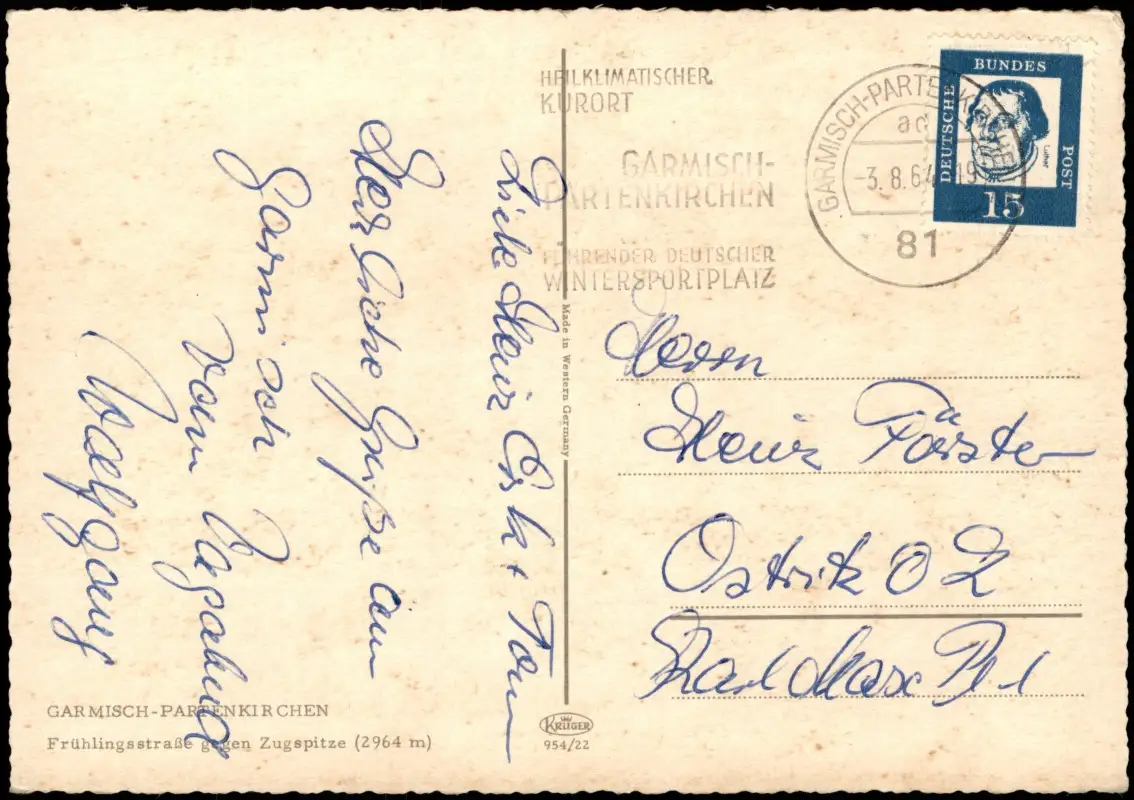 HEILKLIMATISCHER
KURORT
GARMISCH-
PARTENKIRCHEN
FÜHRENDER DEUTSCHER
WINTERSPORTPLATZ
GARMISCH-PARTENKIRCHEN
ad
-3.8.64-19
81
DEUTSCHE BUNDES POST
Luther
15
Herrn
Heinz Förster
Ostritz OL
Karl Marx
Liebe Heinz
Herzliche Grüße aus
Garmisch
vom
Wolfgang
Made in Western Germany
GARMISCH-PARTENKIRCHEN
Frühlingsstraße gegen Zugspitze (2964 m)
KRÜGER
954/22